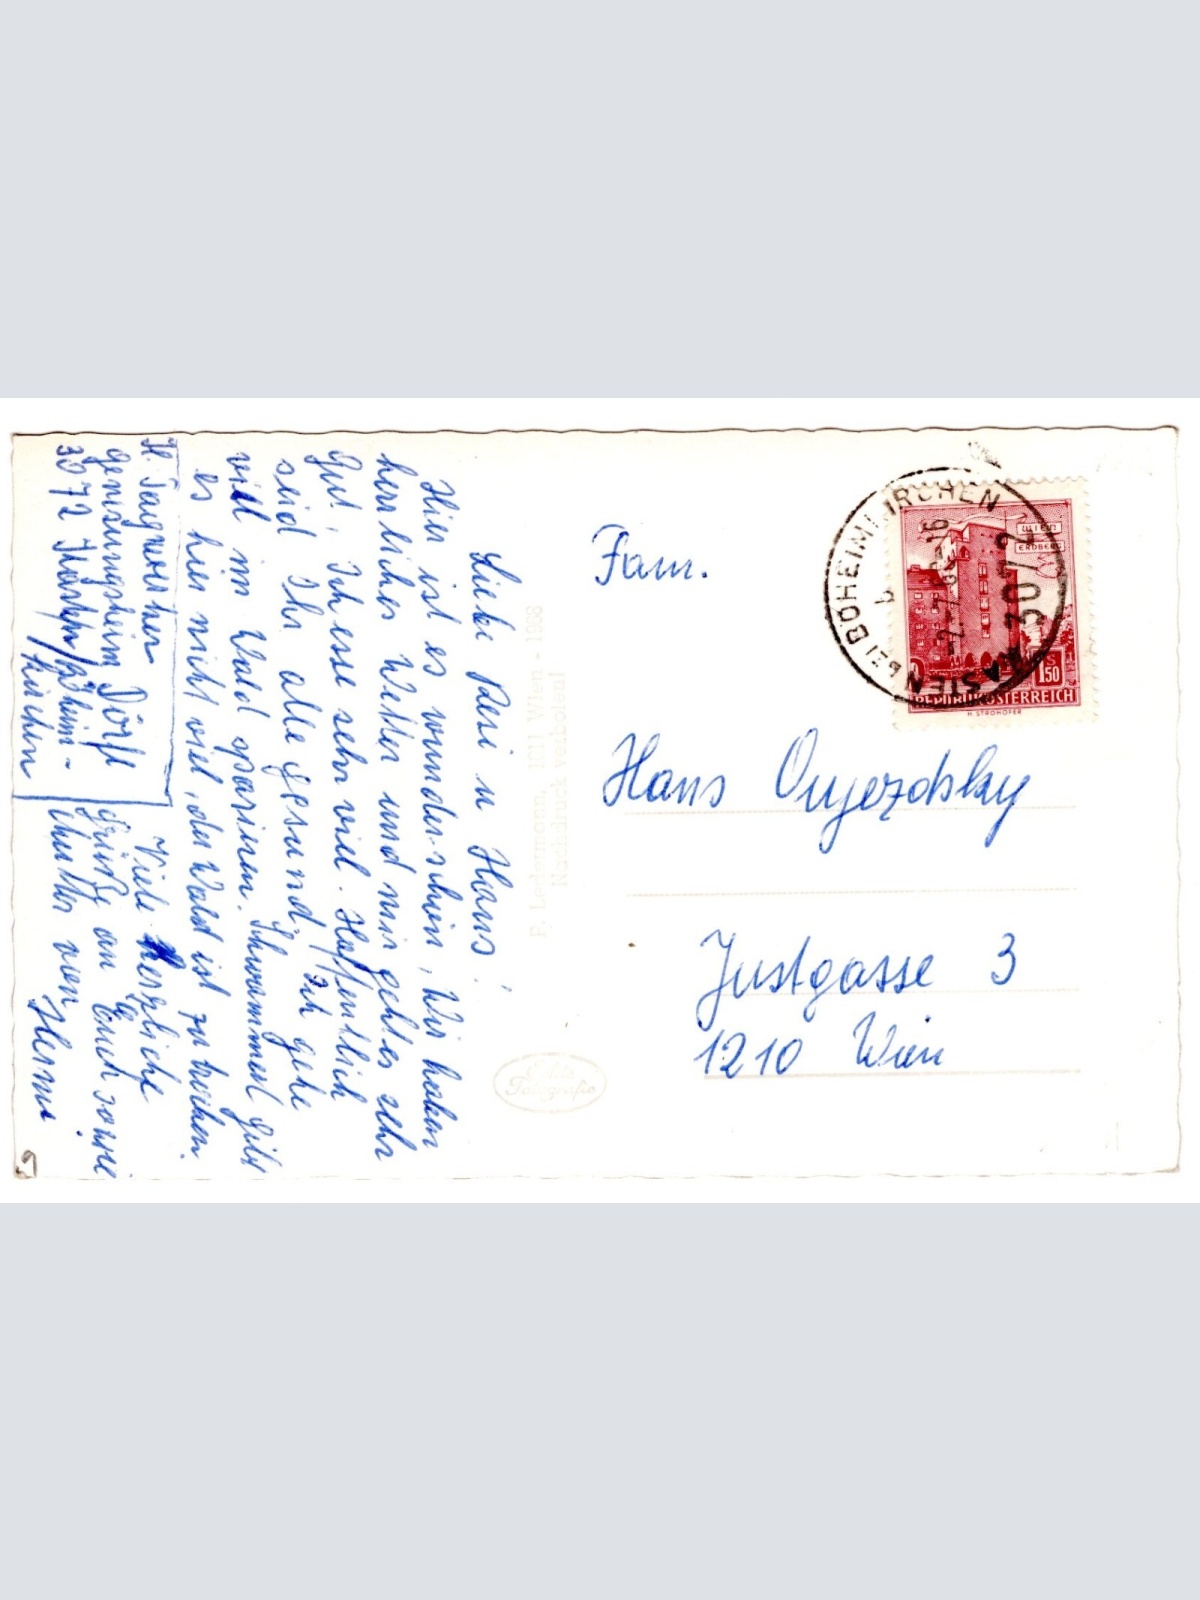 Liebe Resi u Hans!
Hier ist es wunderschön, wir haben
herrliches Wetter und mir geht es sehr
gut. Ich esse sehr viel. Hoffentlich
seid Ihr alle gesund, Ich gehe
viel im Wald spazieren. Schwammerl gibt
es hier nicht viel, der Wald ist zu trocken.
Viele herzliche
Grüße an Euch sowie
Mutter von
Hermi
H. Tagwerker
genesungsheim Dörfl
3072 Kasten/Böheim-
kirchen
P. Ledermann, 1011 Wien - 1968
Nachdruck verboten!
Echte
Fotografie
Fam.
Hans Oujezdsky
Justgasse 3
1210 Wien
KASTEN BEI BÖHEIMKIRCHEN
3072
b
WIEN
ERDBERG
S
1,50
REPUBLIK ÖSTERREICH
H. STROHOFER